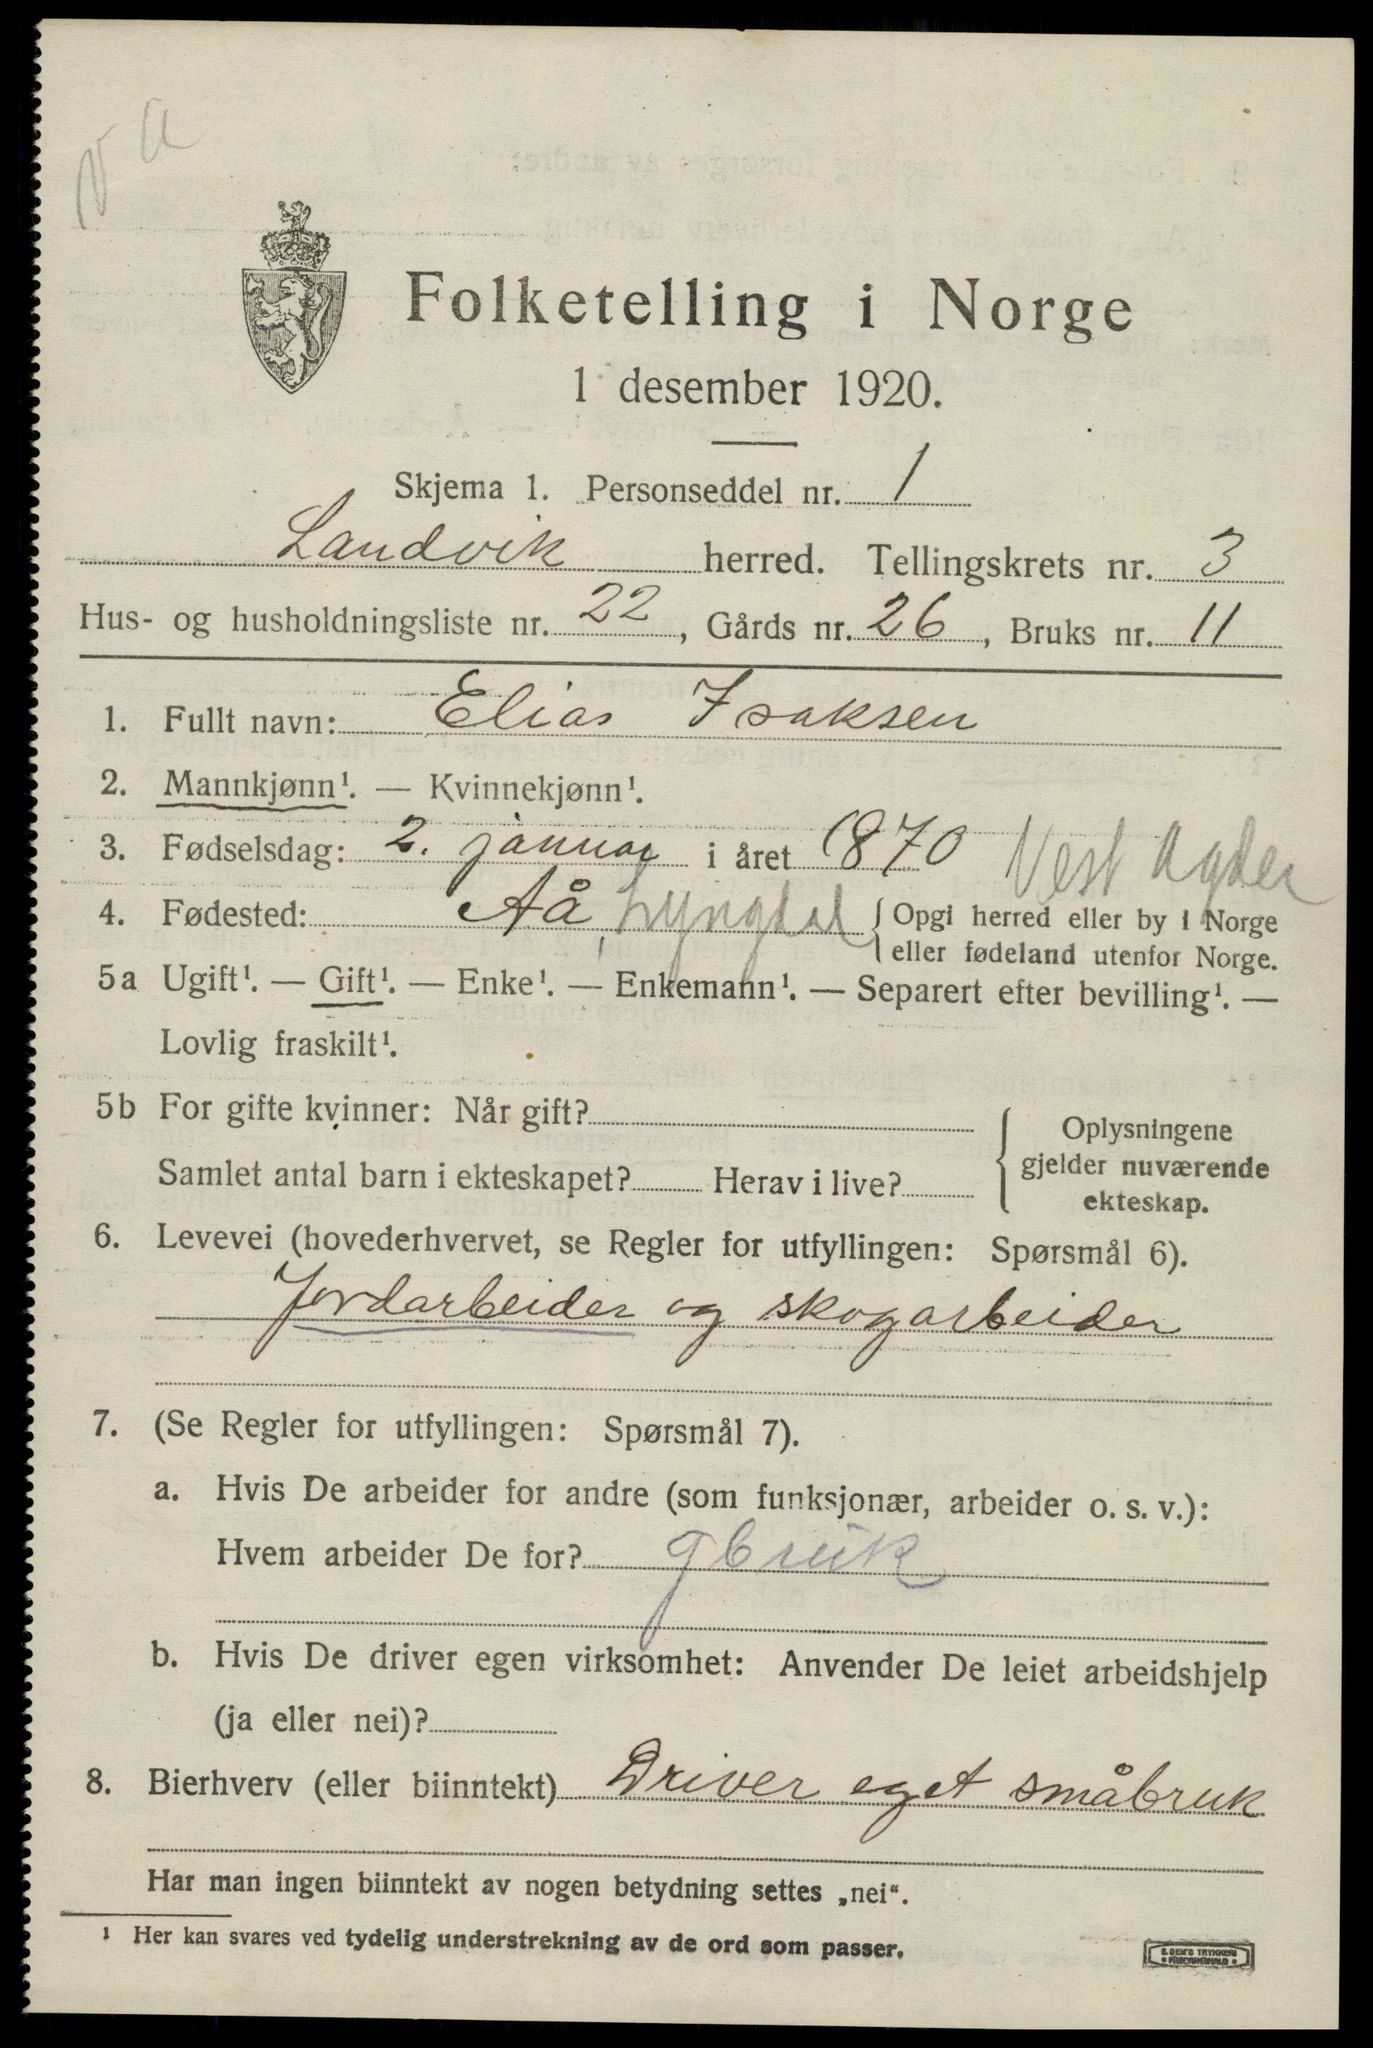 V a
Folketelling i Norge
1 desember 1920.
Skjema 1. Personseddel nr. 1
Landvik herred. Tellingskrets nr. 3
Hus- og husholdningsliste nr. 22, Gårds nr. 26, Bruks nr. 11
1. Fullt navn: Elias Isaksen
2. Mannkjønn¹. — Kvinnekjønn¹.
3. Fødselsdag: 2. januar i året 1870 Vest Agder
4. Fødested: Aå, Lyngdal {Opgi herred eller by i Norge
eller fødeland utenfor Norge.
5a Ugift¹. — Gift¹. — Enke¹. — Enkemann¹. — Separert efter bevilling¹. —
Lovlig fraskilt¹.
5b For gifte kvinner: Når gift?
Samlet antal barn i ekteskapet? Herav i live?
Oplysningene
gjelder nuværende
ekteskap.
6. Levevei (hovederhvervet, se Regler for utfyllingen: Spørsmål 6).
Jordarbeider og skogarbeider
7. (Se Regler for utfyllingen: Spørsmål 7).
a. Hvis De arbeider for andre (som funksjonær, arbeider o. s. v.):
Hvem arbeider De for? gbruk
b. Hvis De driver egen virksomhet: Anvender De leiet arbeidshjelp
(ja eller nei)?
8. Bierhverv (eller biinntekt) Driver eget småbruk
Har man ingen biinntekt av nogen betydning settes „nei“.
¹ Her kan svares ved tydelig understrekning av de ord som passer.